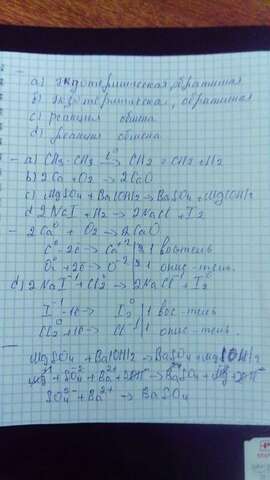 a) эндотермическая, обратимая
b) экзотермическая, обратимая
c) реакция обмена
d) реакция обмена
- a) CH3-CH3 -> CH2=CH2+H2
b) 2Ca+O2 -> 2CaO
c) MgSO4+Ba(OH)2 -> BaSO4+Mg(OH)2
d) 2NaI + -> 2NaCl+I2
- 2Ca⁰ + O2 -> 2CaO
-2e-> Ca+2 1 вос-тель
+2e-> O-2 1 окис-тель.
d) 2NaI-1+Cl2⁰ -> 2NaCl-1+I2⁰
I-1 -1e-> I2⁰ 1 вос-тель
Cl2⁰ +1e-> Cl-1 1 окис-тель.
MgSO4 + Ba(OH)2 -> BaSO4 + Mg(OH)2
+SO4 2- + Ba2+ + -> BaSO4 +
SO4 2- + Ba2+ -> BaSO4